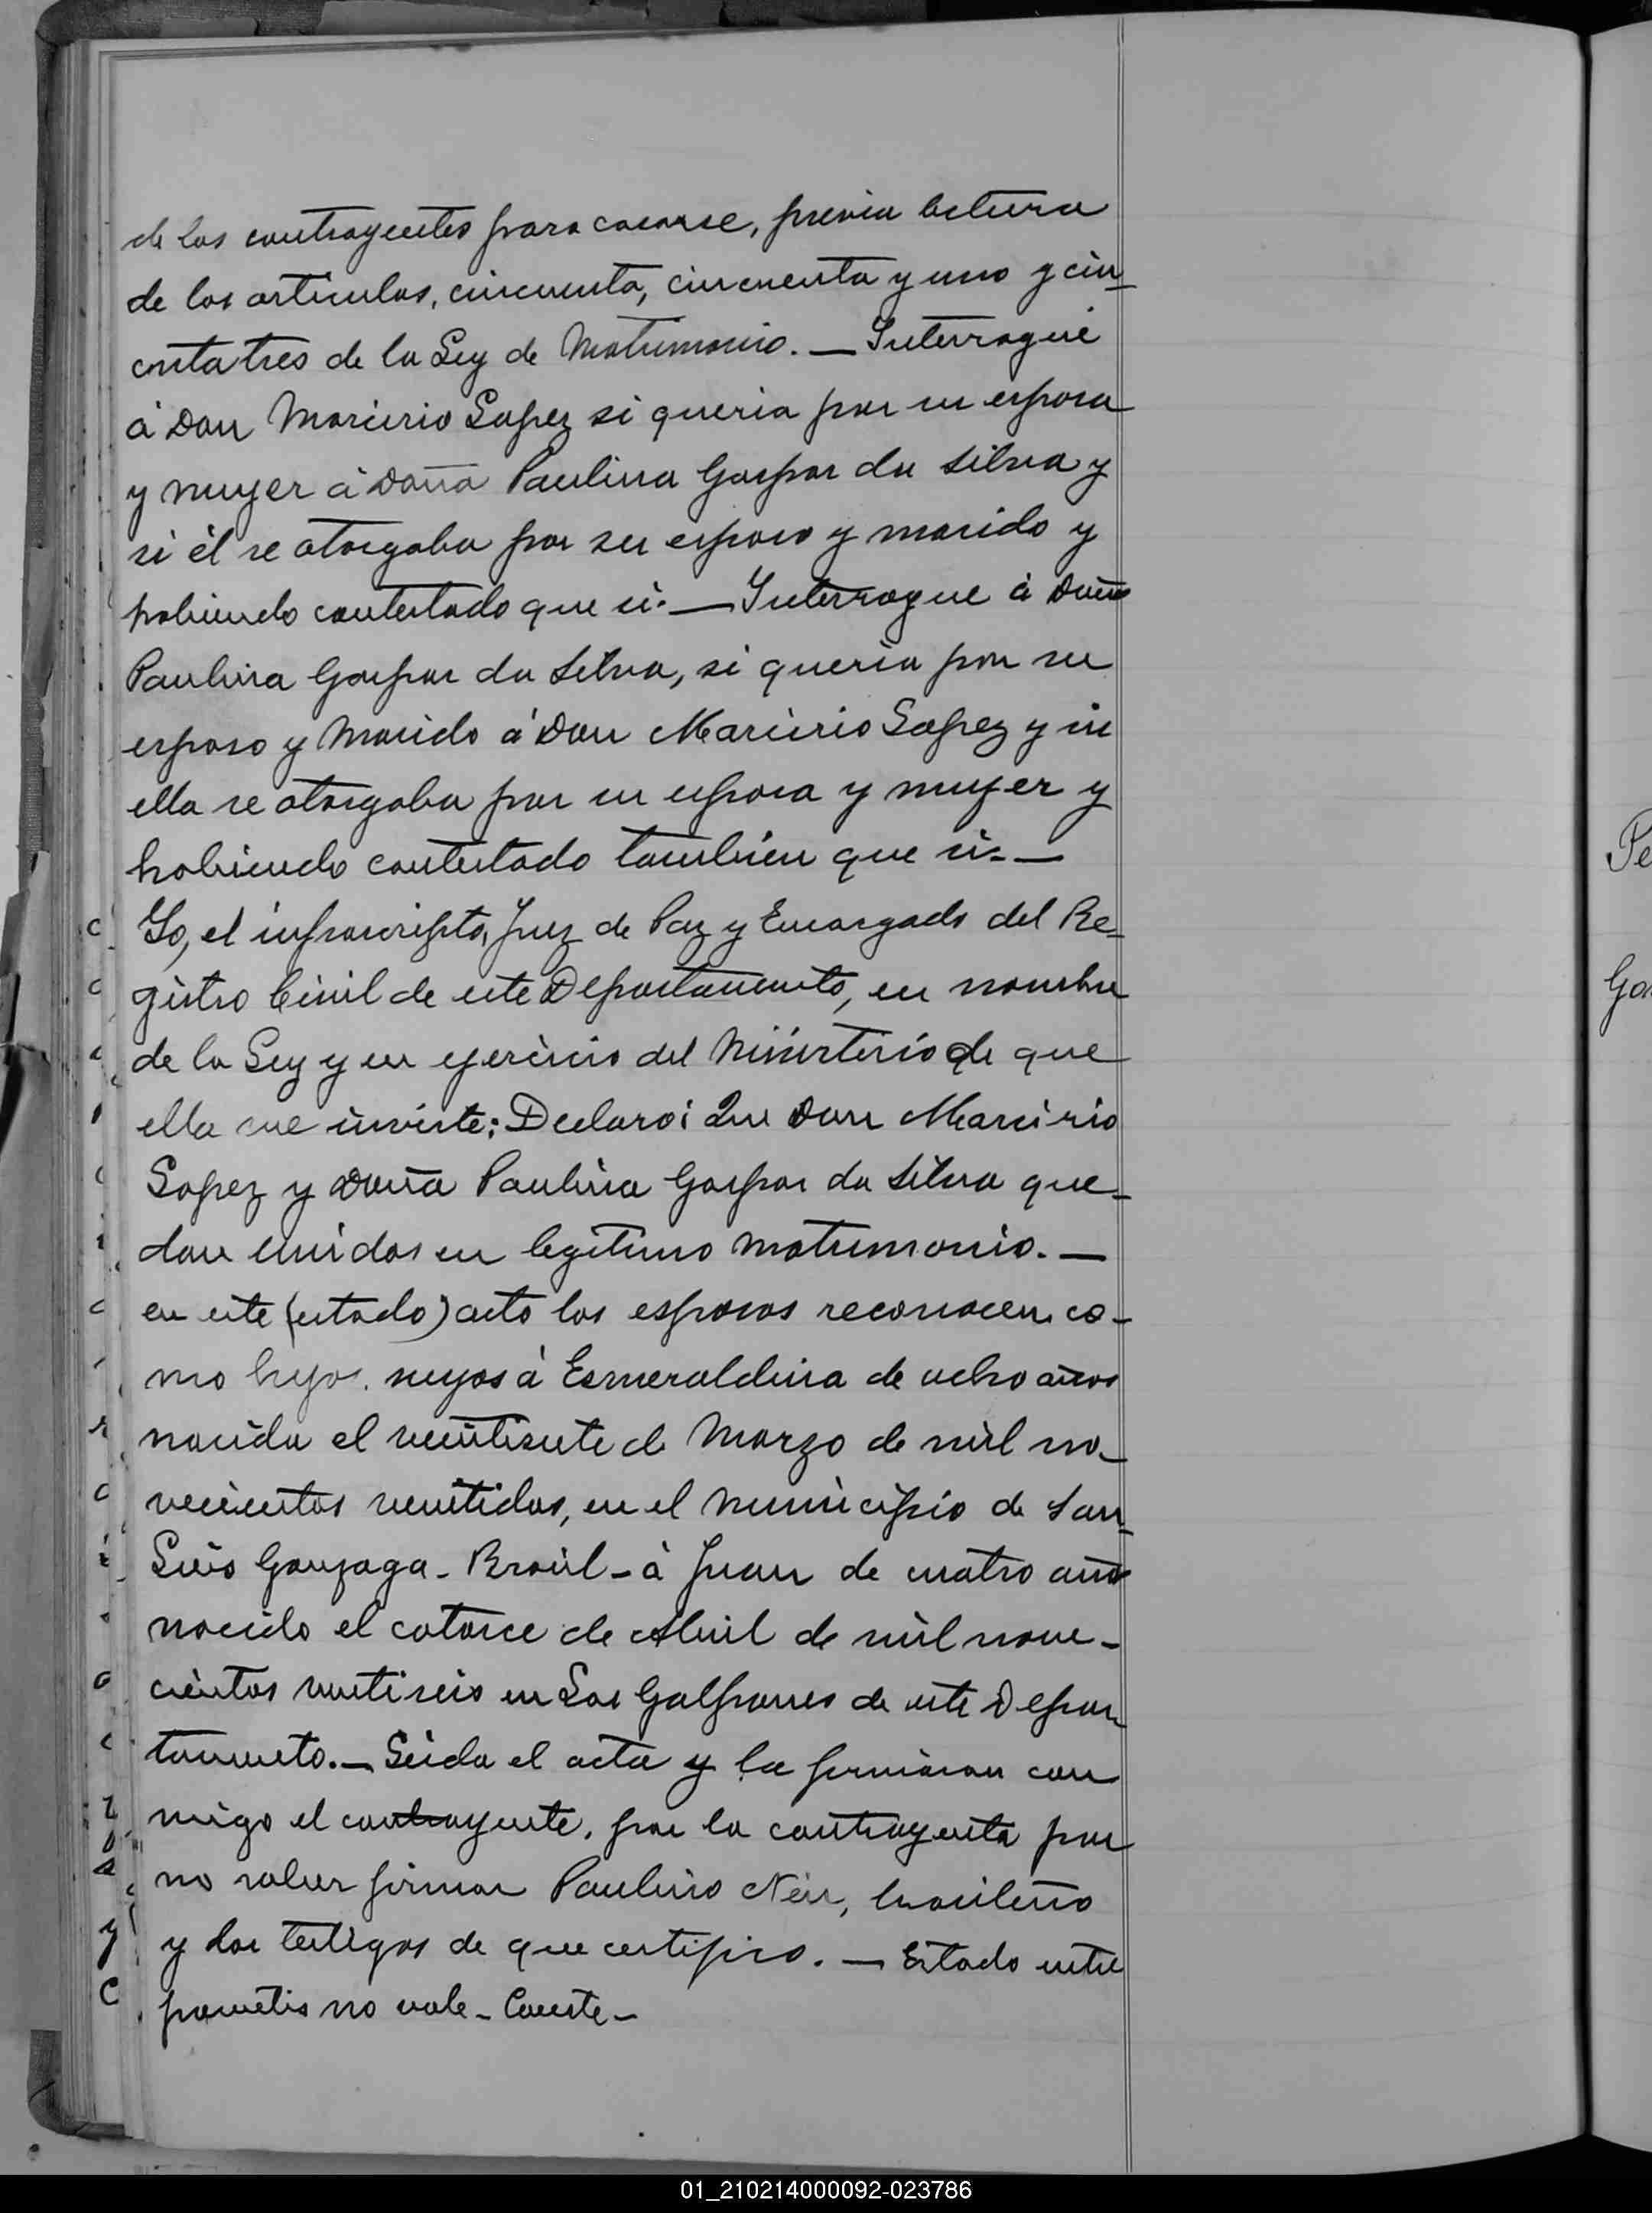 de los contrayentes para casarse, previa lectura
de los articulos, cincuenta, cincuenta y uno y cin-
cuenta tres de la Ley de Matrimonio. — Interrogué
á Don Marcirio Lopez si queria por su esposa
y muger á Doña Paulina Gaspar da Silva y
si él se otorgaba por su esposo y marido y
habiendo contestado que si. — Interrogue á Doña
Paulina Gaspar da Silva, si queria por su
esposo y Marido á Don Marcirio Lopez y si
ella se otorgaba por su esposa y mujer y
habiendo contestado tambien que si. —
Yo, el infrascripto, Juez de Paz y Encargado del Re-
gistro Civil de este Departamento, en nombre
de la Ley y en ejercicio del Ministerio de que
ella me inviste: Declaro: Que Don Marcirio
Lopez y Doña Paulina Gaspar da Silva que-
dan Unidos en legitimo matrimonio. —
en este (estado) acto los esposos reconocen co-
mo hijos suyos á Esmeraldina de ocho años
nacida el veintisiete de Marzo de mil no-
vecientos veintidos, en el Municipio de San
Luis Gonzaga - Brasil - á Juan de cuatro años
nacido el catorce de Abril de mil nove-
cientos veintiseis en Los Galpones de este Depar-
tamento. — Leida el acta y la firmaron con
migo el contrayente, por la contrayenta por
no saber firmar Paulino Neir, brasileño
y los testigos de que certifico. — Estado entre
parentis no vale - Conste -
Pe
Gas
01_210214000092-023786